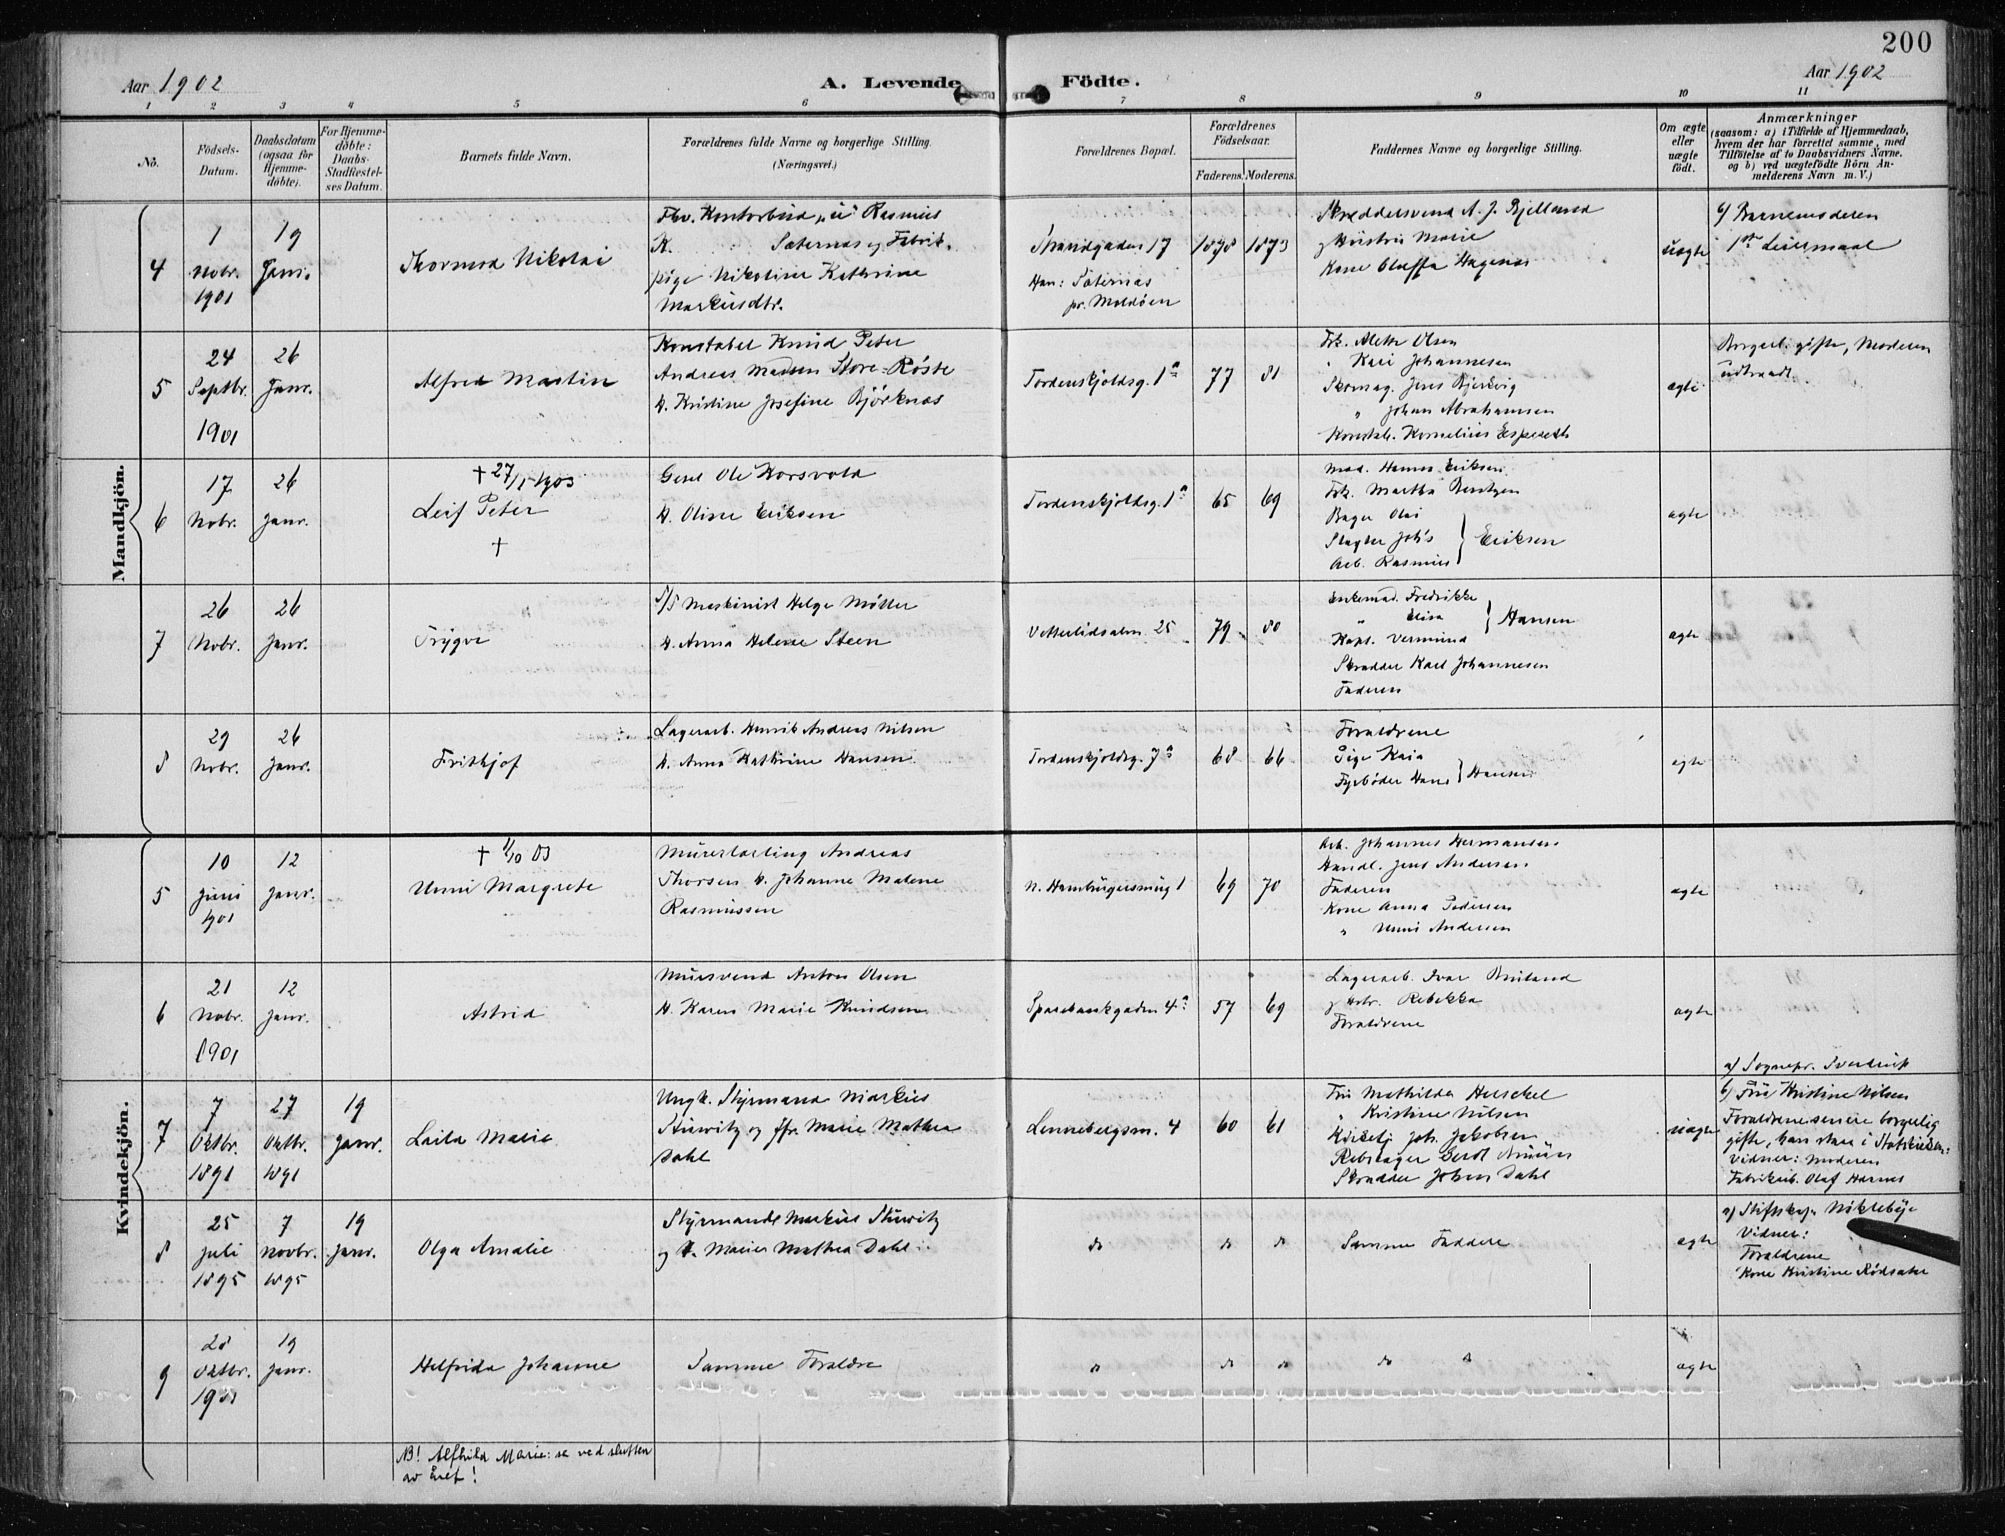 200
Aar 1902
A. Levende
Födte.
Aar 1902
1 2 3 4 5 6 7 8 9 10 11
No.
Födsels-
Datum.
Daabsdatum
(ogsaa for
Hjemme-
döbte).
For Hjemme-
döbte:
Daabs-
Stadfæstel-
ses Datum.
Barnets fulde Navn.
Forældrenes fulde Navne og borgerlige Stilling.
(Næringsvei.)
Forældrenes Bopæl.
Forældrenes
Födselsaar.
Faderens. Moderens.
Faddernes Navne og borgerlige Stilling.
Om ægte
eller
uægte
födt.
Anmærkninger
(saasom: a) i Tilfælde af Hjemmedaab,
hvem der har forrettet samme, med
Tilföielse af to Daabsvidners Navne.
og b) ved uægtefödte Börn An-
melderens Navn m. V.)
Mandkjön.
4
1
Nobr.
1901
19
Janr.
Thormod Nikolai
Fhv. Kontorbud Rasmus
K. Sæternæs og Fabrik.
pige Nikoline Kathrine
Markusdtr.
Strandgaden 17
Han: Sæternæs
pr. Moldöen
1878
1873
Skreddersvend A. J. Bjelland
og Hustru Marie
Kone Oluffa Hagenæs
uægte
b) Barnemoderen
1ste Leiermaal
5
24
Septbr.
1901
26
Janr.
Alfred Martin
Konstabel Knud Peter
Andreas Madsen Store-Röste
H. Kristine Josefine Björknæs
Tordenskjoldsg. 1a
77
81
Frk. Alette Olsen
" Kari Johannesen
Skomag. Jens Bjerkvig
" Johan Abrahamsen
Konstab. Kornelius Espeseth
ægte
Borgerl. gifte, Moderen
udtraadt.
6
17
Nobr.
26
Janr.
+ 27/1 1903
Leif Peter
+
Gesel Ole Korsvold
H. Oline Eriksen
Tordenskjoldsg. 1a
65
69
Mad. Hanna Eriksen
Frk. Martha Berntzen
Bager Olai
Slagter Johs
Arb. Rasmus
Eriksen
ægte
7
26
Nobr.
26
Janr.
Trygve
S/S Maskinist Helge Möller
H. Anna Helene Steen
Vetterlidsalm. 25
79
80
Enkemad. Fredrikke
" Elisa
Kapt. Vermund
Hansen
Skrædder Karl Johannesen
Faderen
ægte
8
29
Nobr.
26
Janr.
Fritjof
Lagerarb. Henrik Andreas Nilsen
H. Anna Kathrine Hansen
Tordenskjoldsg. 7a
68
66
Forældrene
Pige Kaia
Fyrböder Hans
Hansen
ægte
Kvindekjön.
5
10
Juni
1901
12
Janr.
+ 11/10 03
Unni Margrete
Murerlærling Andreas
Thorsen H. Johanne Malene
Rasmussen
N. Hamburgersmug 1
69
70
Arb. Johannes Hermansen
Handl. Jens Andersen
Faderen
Kone Anna Pedersen
" Unni Andersen
ægte
6
21
Nobr.
1901
12
Janr.
Astrid
Mursvend Anton Olsen
H. Karen Marie Knudsen
Sparebankgaden 4a
57
69
Lagerarb. Ivar
og Hstr. Rebekka
Forældrene
ægte
7
7
Oktbr.
1891
27
Oktbr.
1891
19
Janr.
Laila Marie
Ungk. Styrmand Markus
Stuwitz og ffr. Marie Mathea
Dahl
Lennebergsm. 4
60
61
Fru Mathilda Herschel
" Kristine Nilsen
Joh. Jakobsen
Rebslager
Skrædder Johan Dahl
uægte
a) Sognepr. Sverdrup
b) Fru Kristine Nilsen
Forældrene senere borgerlig
gifte, han staar i Statskirken:
Vidner: Moderen
Fabrikarb. Olaf Harnes
8
25
Juli
1895
7
Novbr.
1895
19
Janr.
Olga Amalie
Styrmand Markus Stuwitz
og H. Marie Mathea Dahl
do
do
do
Samme Faddere
ægte
a) Stiftskap. Niklebye
Vidner:
Forældrene
Kone Kristine Rödsæter
9
28
Oktbr.
1901
19
Janr.
Helfrida Johanne
Samme Forældre
do
do
do
do do
ægte
NB! Alfhild Marie: se ved slutten
av året!